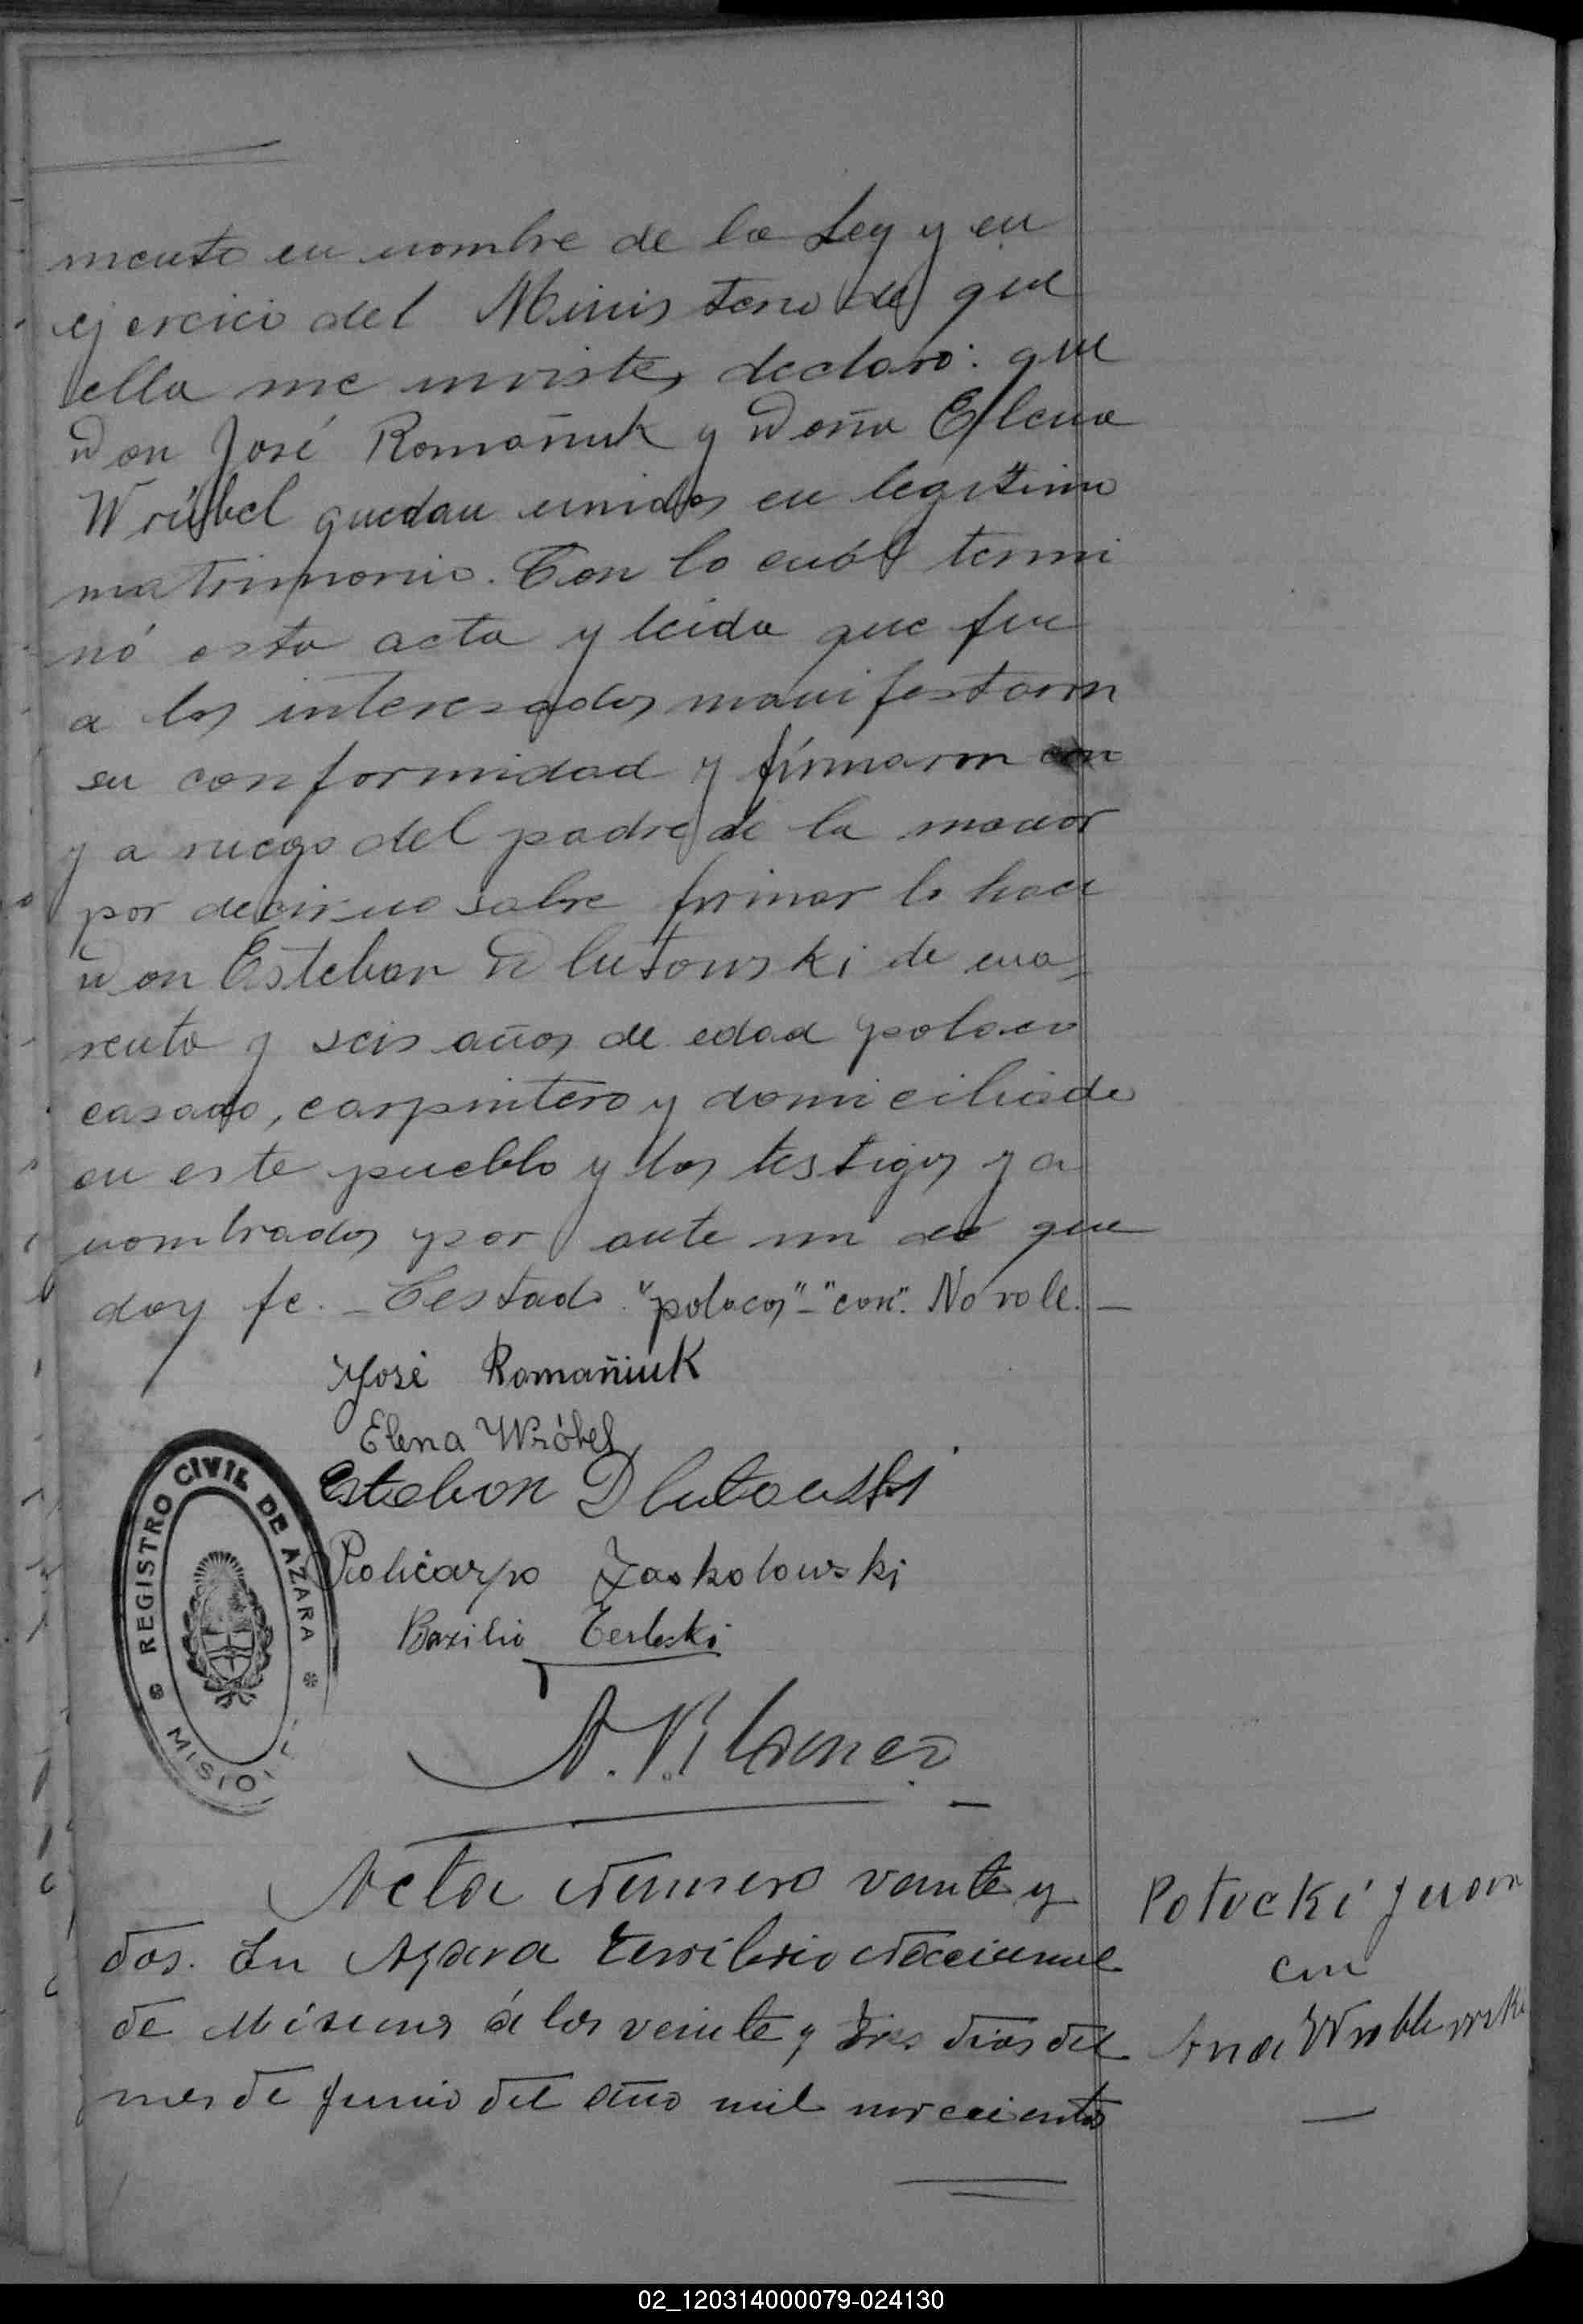 mento en nombre de la Ley y en
ejercicio del Ministerio de que
ella me inviste, declaro: que
Don José Romañuk y Doña Elena
Wrúbel quedan unidos en legitimo
matrimonio. Con lo cuál termi
nó esta acta y leida que fue
a los interesados manifestaron
su conformidad y firmaron con
y a ruego del padre de la menor
por decir no saber firmar lo hace
Don Esteban Dlutowski de cua-
renta y seis años de edad polaco
casado, carpintero y domiciliado
en este pueblo y los testigos ya
nombrados por ante mi de que
doy fe. - Testado "polacos" - "con". No vale. -
José Romañiuk
Elena Wróbel
Esteban Dlutowski
Policarpo Zaskolowski
Bazilio Terleski
REGISTRO CIVIL DE AZARA
MISIO
Acta Numero veinte y
dos. En Azara Territorio Nacional
de Misiones á los veinte y tres dias del
mes de Junio del año mil novecientos
Potocki Juan
con
Ana Wroblewski
02_120314000079-024130